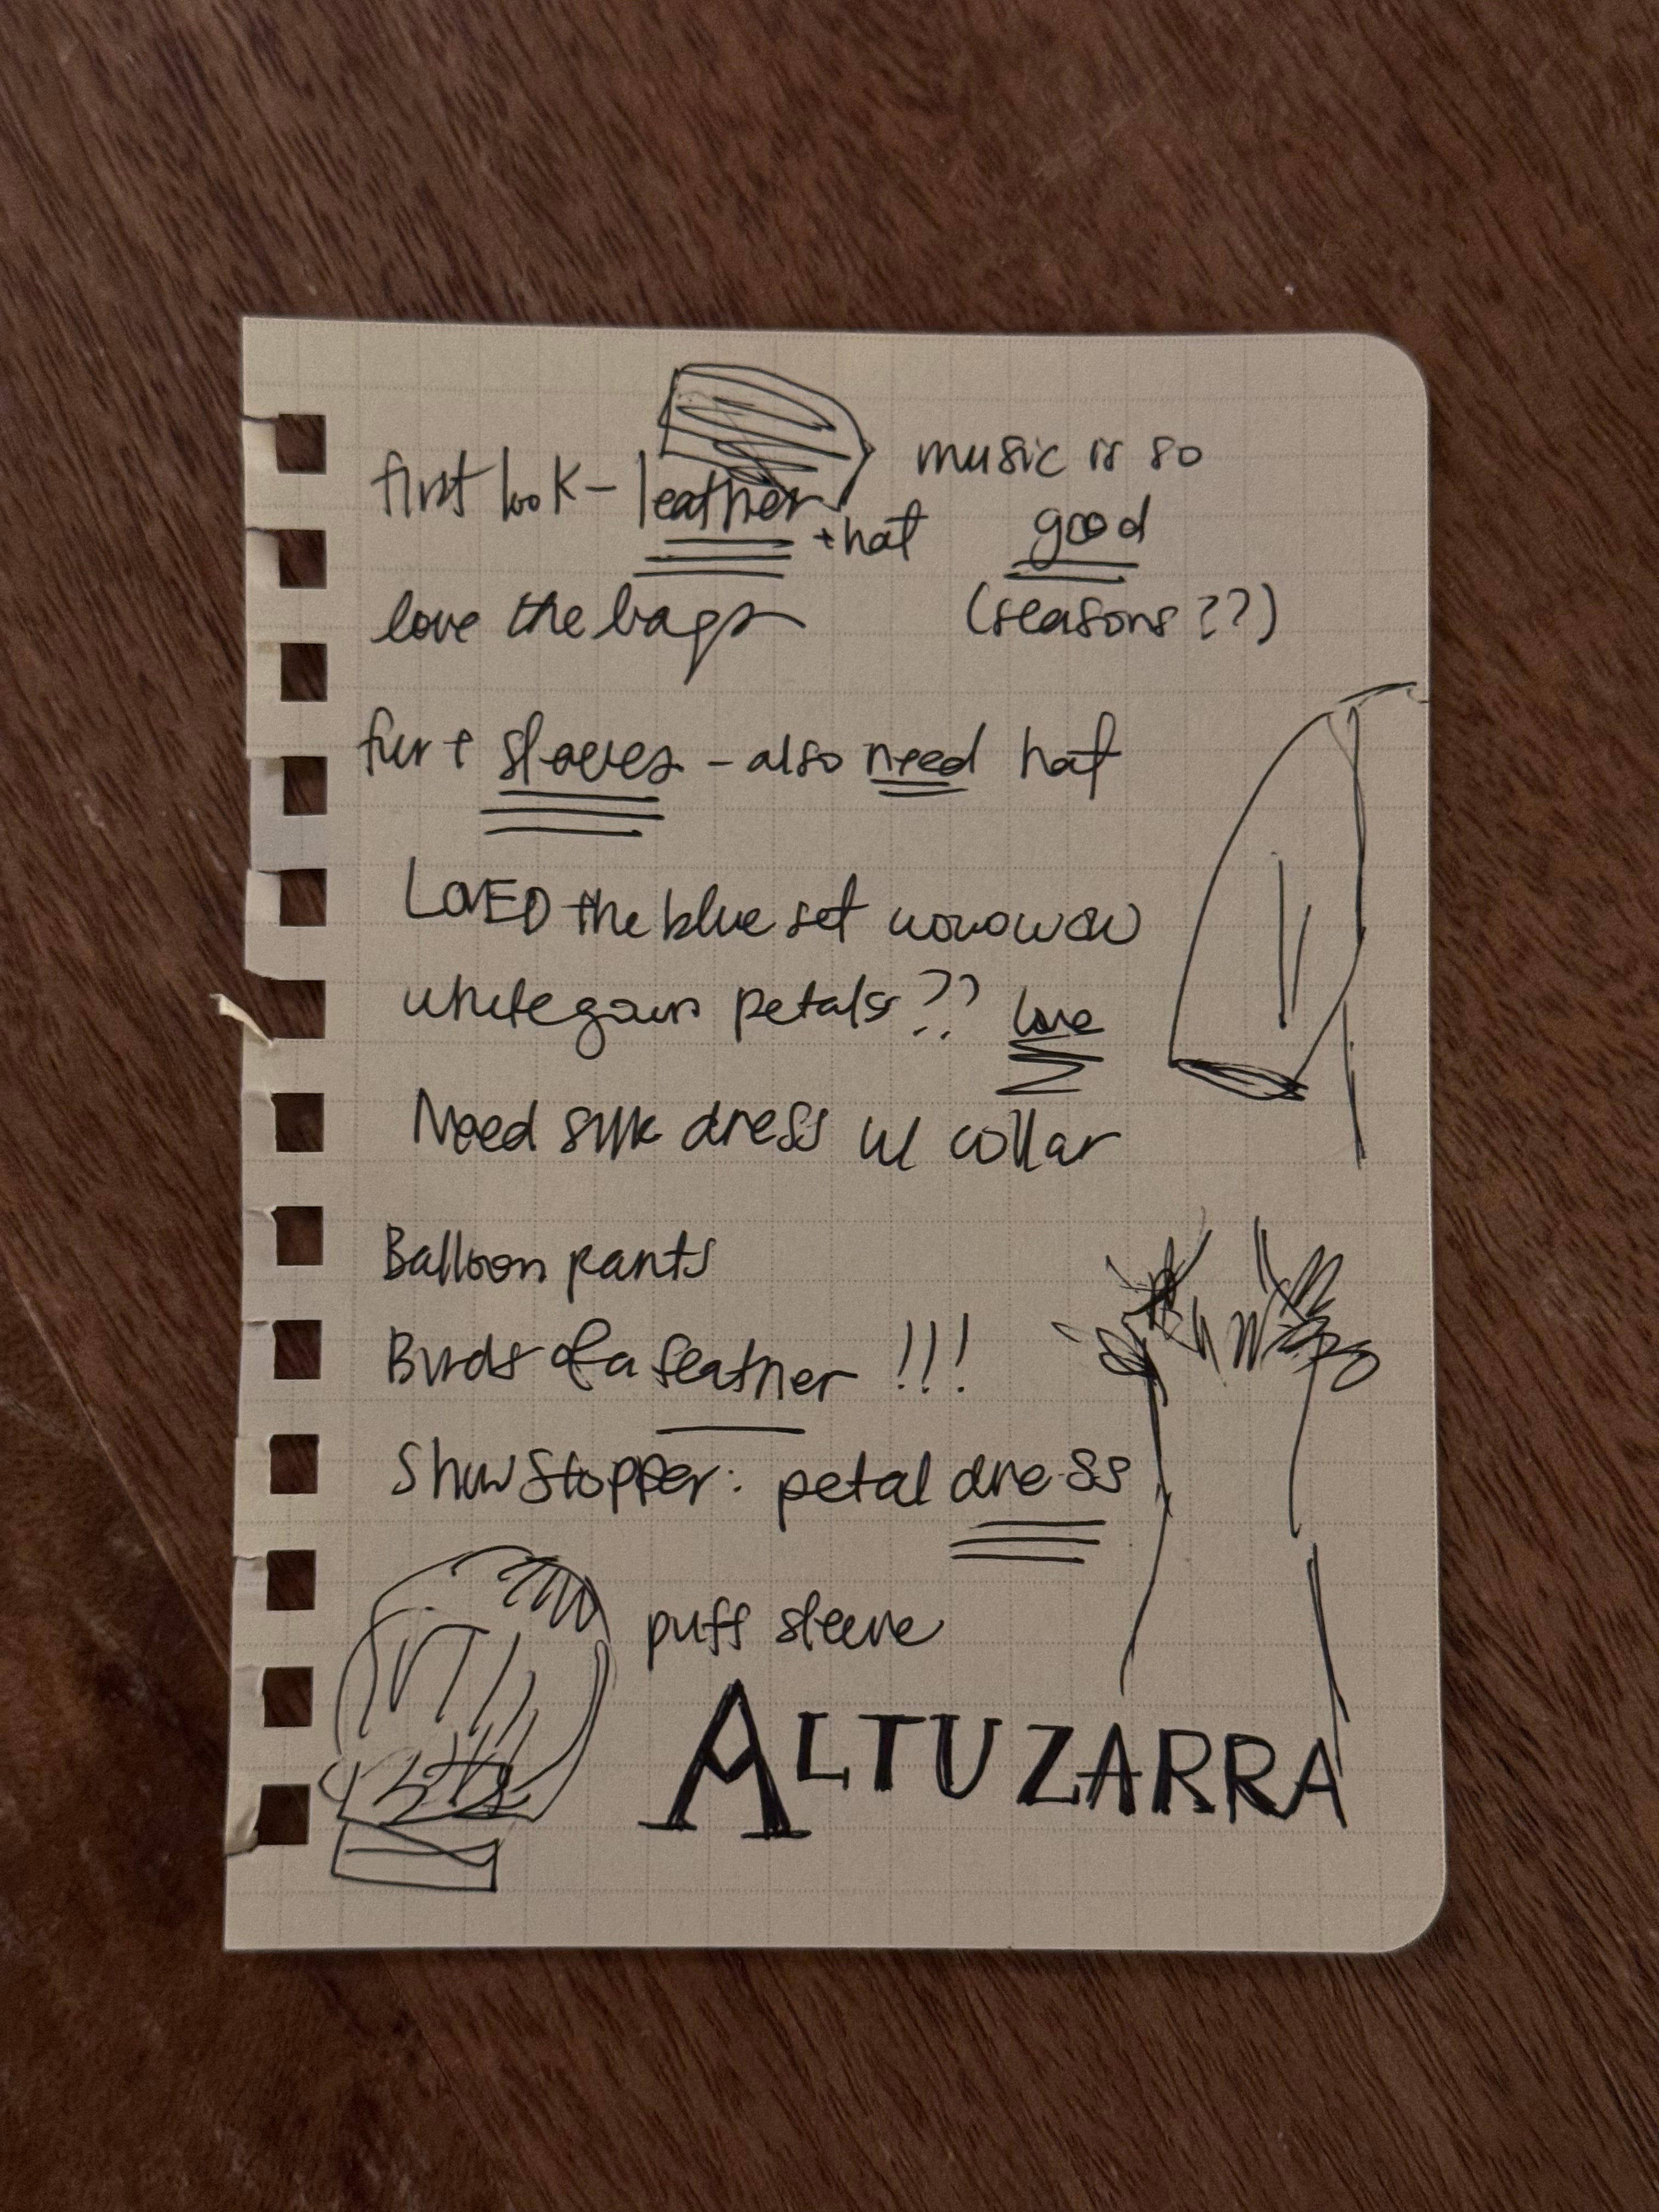 first look - leather + hat
music is so
good
(seasons ??)
love the bags
fur + sleeves - also need hat
LOVED the blue set wowowow
white gown petals?? love
Need silk dress w/ collar
Balloon pants
Birds of a feather !!!
Show stopper: petal dress
puff sleeve
ALTUZARRA